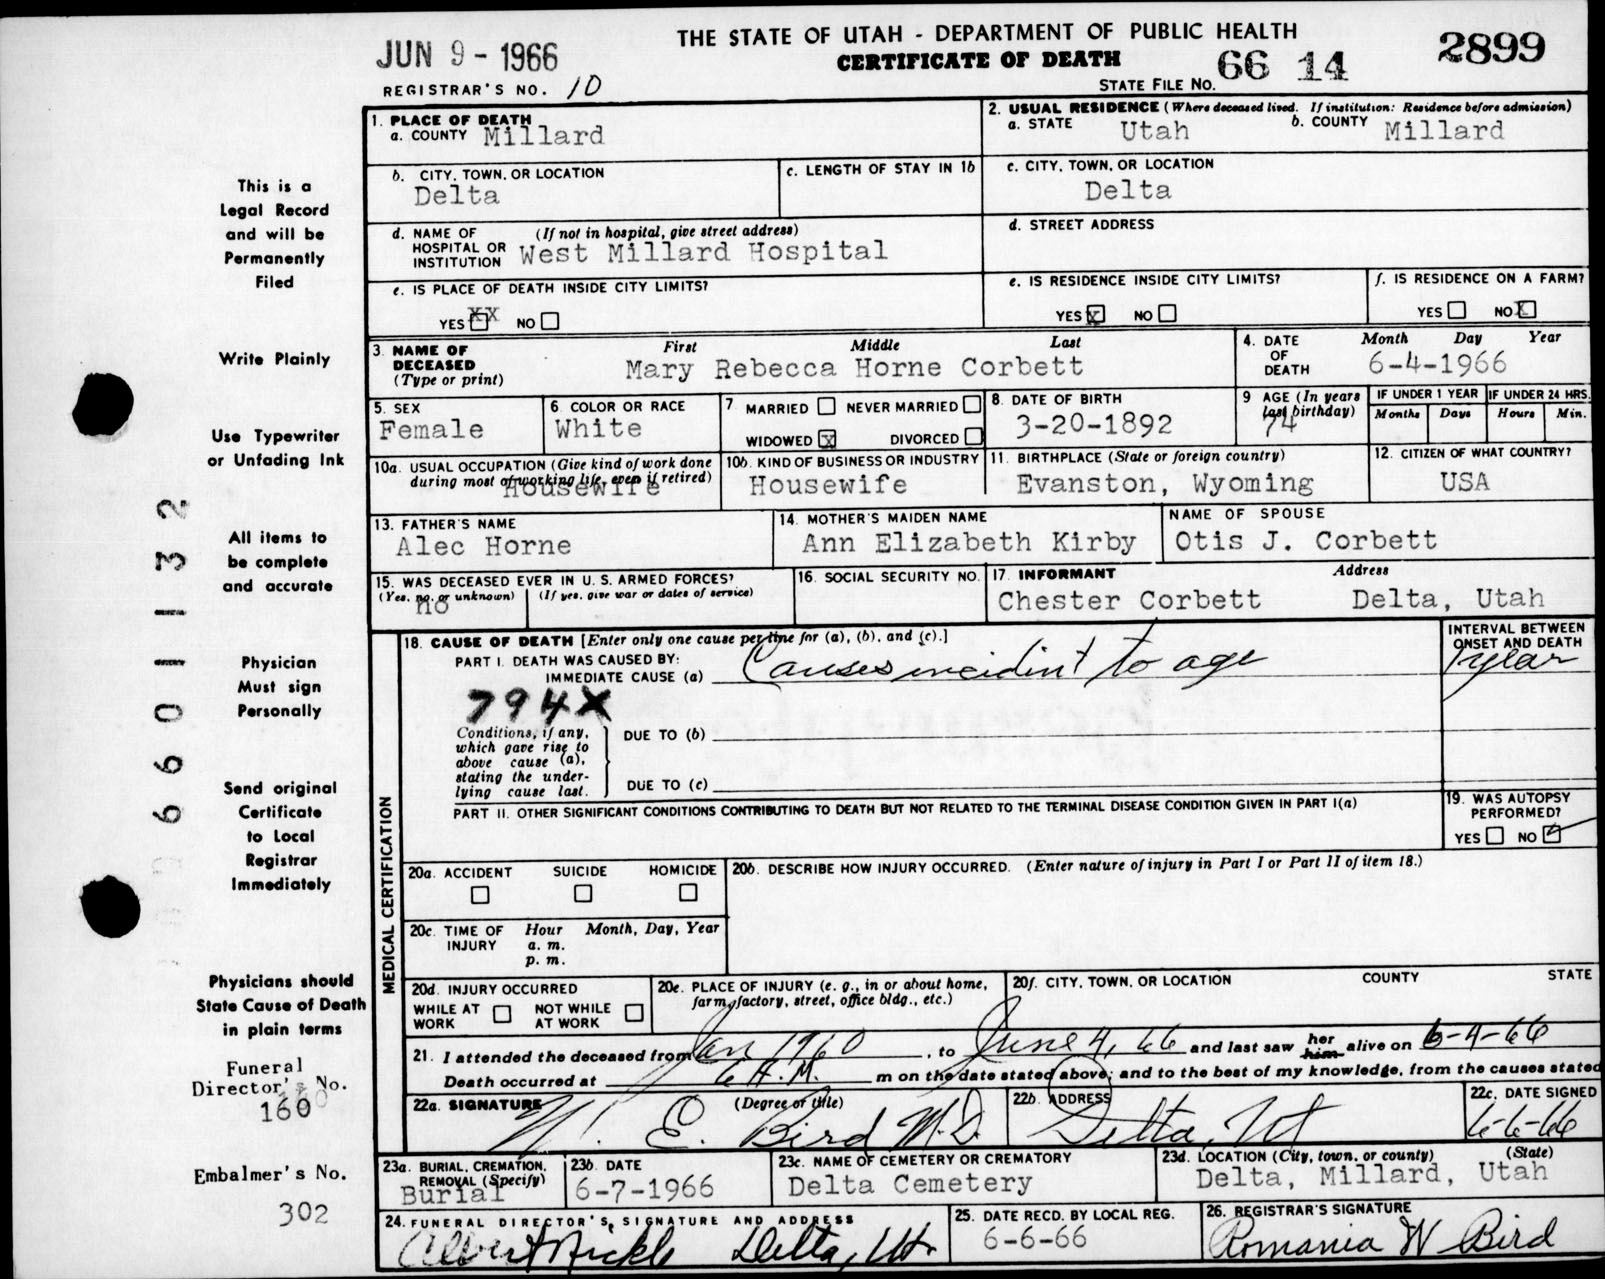 JUN 9 - 1966
THE STATE OF UTAH - DEPARTMENT OF PUBLIC HEALTH
CERTIFICATE OF DEATH
2899
REGISTRAR'S NO. 10
STATE FILE NO. 66 14
1. PLACE OF DEATH
a. COUNTY Millard
2. USUAL RESIDENCE (Where deceased lived. If institution: Residence before admission)
a. STATE Utah b. COUNTY Millard
b. CITY, TOWN, OR LOCATION
Delta
c. LENGTH OF STAY IN 1b
c. CITY, TOWN, OR LOCATION
Delta
d. NAME OF HOSPITAL OR INSTITUTION (If not in hospital, give street address)
West Millard Hospital
d. STREET ADDRESS
e. IS PLACE OF DEATH INSIDE CITY LIMITS?
YES XX NO
e. IS RESIDENCE INSIDE CITY LIMITS?
YES X NO
f. IS RESIDENCE ON A FARM?
YES NO X
3. NAME OF DECEASED (Type or print)
First Middle Last
Mary Rebecca Horne Corbett
4. DATE OF DEATH Month Day Year
6-4-1966
5. SEX
Female
6. COLOR OR RACE
White
7. MARRIED NEVER MARRIED
WIDOWED X DIVORCED
8. DATE OF BIRTH
3-20-1892
9 AGE (In years last birthday)
74
IF UNDER 1 YEAR
Months Days
IF UNDER 24 HRS.
Hours Min.
10a. USUAL OCCUPATION (Give kind of work done during most of working life, even if retired)
Housewife
10b. KIND OF BUSINESS OR INDUSTRY
Housewife
11. BIRTHPLACE (State or foreign country)
Evanston, Wyoming
12. CITIZEN OF WHAT COUNTRY?
USA
13. FATHER'S NAME
Alec Horne
14. MOTHER'S MAIDEN NAME
Ann Elizabeth Kirby
NAME OF SPOUSE
Otis J. Corbett
15. WAS DECEASED EVER IN U. S. ARMED FORCES?
(Yes, no, or unknown) (If yes, give war or dates of service)
no
16. SOCIAL SECURITY NO.
17. INFORMANT Address
Chester Corbett Delta, Utah
MEDICAL CERTIFICATION
18. CAUSE OF DEATH [Enter only one cause per line for (a), (b), and (c).]
PART I. DEATH WAS CAUSED BY:
IMMEDIATE CAUSE (a) Causes incidint to age
INTERVAL BETWEEN ONSET AND DEATH
1 year
794X
Conditions, if any, which gave rise to above cause (a), stating the underlying cause last.
DUE TO (b)
DUE TO (c)
PART II. OTHER SIGNIFICANT CONDITIONS CONTRIBUTING TO DEATH BUT NOT RELATED TO THE TERMINAL DISEASE CONDITION GIVEN IN PART I(a)
19. WAS AUTOPSY PERFORMED?
YES NO
20a. ACCIDENT SUICIDE HOMICIDE
20b. DESCRIBE HOW INJURY OCCURRED. (Enter nature of injury in Part I or Part II of item 18.)
20c. TIME OF INJURY Hour Month, Day, Year
a. m.
p. m.
20d. INJURY OCCURRED
WHILE AT WORK NOT WHILE AT WORK
20e. PLACE OF INJURY (e. g., in or about home, farm, factory, street, office bldg., etc.)
20f. CITY, TOWN, OR LOCATION COUNTY STATE
21. I attended the deceased from Jan 1960, to June 4, 66 and last saw her him alive on 6-4-66
Death occurred at 6 A.M. m on the date stated above; and to the best of my knowledge, from the causes stated
22a. SIGNATURE (Degree or title)
W. E. Bird M.D.
22b. ADDRESS
Delta, Ut
22c. DATE SIGNED
6-6-66
23a. BURIAL, CREMATION, REMOVAL (Specify)
Burial
23b. DATE
6-7-1966
23c. NAME OF CEMETERY OR CREMATORY
Delta Cemetery
23d. LOCATION (City, town, or county) (State)
Delta, Millard, Utah
24. FUNERAL DIRECTOR'S SIGNATURE AND ADDRESS
Albert Nickle Delta, Ut.
25. DATE RECD. BY LOCAL REG.
6-6-66
26. REGISTRAR'S SIGNATURE
Romania W Bird
This is a
Legal Record
and will be
Permanently
Filed
Write Plainly
Use Typewriter
or Unfading Ink
All items to
be complete
and accurate
Physician
Must sign
Personally
Send original
Certificate
to Local
Registrar
Immediately
Physicians should
State Cause of Death
in plain terms
Funeral
Director's No.
160
Embalmer's No.
302
66 01132